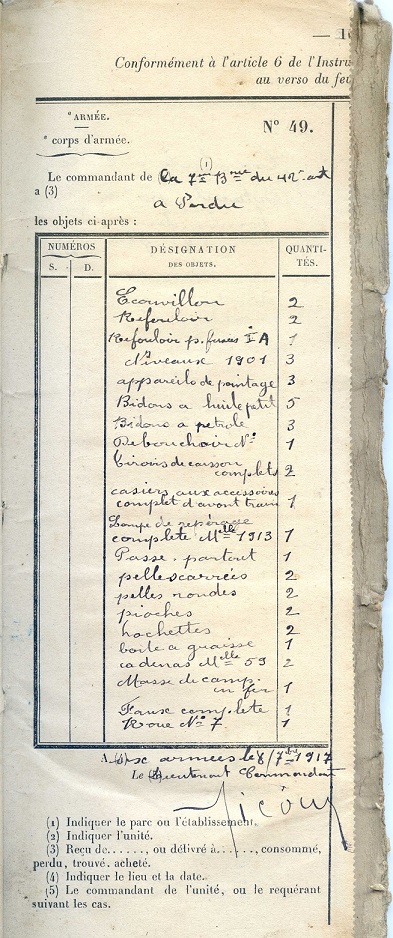 — 1
Conformément à l'article 6 de l'Instru
au verso du feu
e ARMÉE.
e corps d'armée.
N° 49.
(1)
Le commandant de la 7me Bie du 42e art
a (3)
a Perdu
les objets ci-après :
NUMÉROS DÉSIGNATION QUANTI-
S. D. DES OBJETS. TÉS.
Ecouvillon 2
Refouloir 2
Refouloir p. fusees I A 1
Niveaux 1901 3
appareils de pointage 3
Bidons a huile petit 5
Bidons a petrole 3
Debouchoir N° 1
Tiroirs de caisson
complets 2
casiers aux accessoires
complet d'avant train 1
Lampe de repérage
complete Mlle 1913 1
Passe-partout 1
pelles carrées 2
pelles rondes 2
pioches 2
hachettes 2
boite a graisse 1
cadenas Mlle 59 2
Masse de camp.
en fer 1
Faux complete 1
Roue N° 7 1
A (4) armées le 8/7bre 1917
Le Lieutenant Commandant
(1) Indiquer le parc ou l'établissement.
(2) Indiquer l'unité.
(3) Reçu de......, ou délivré à......, consommé,
perdu, trouvé, acheté.
(4) Indiquer le lieu et la date.
(5) Le commandant de l'unité, ou le requérant
suivant les cas.